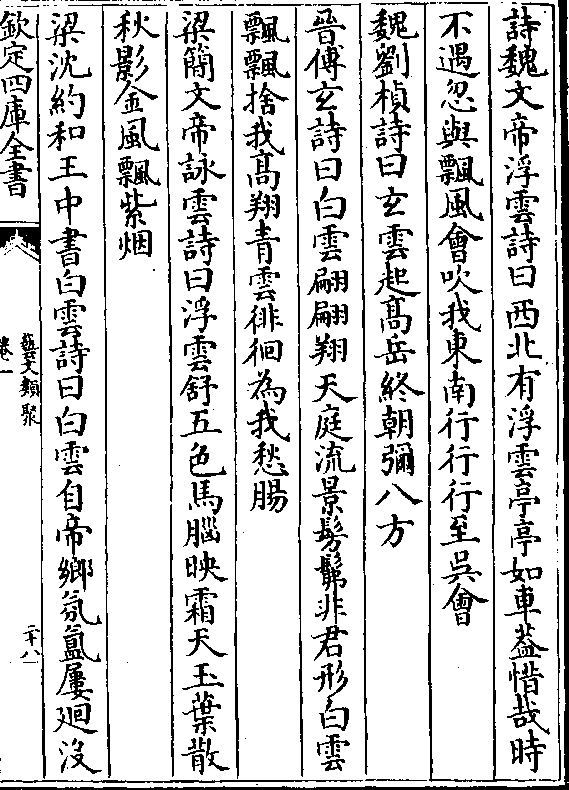 詩魏文帝浮雲詩曰西北有浮雲亭亭如車蓋惜哉時
不遇忽與飄風會吹我東南行行行至吳會
魏劉楨詩曰玄雲起髙岳終朝彌八方
晉傅玄詩曰白雲翩翩翔天庭流景髣髴非君形白雲
飄飄捨我髙翔青雲徘徊為我愁腸
梁簡文帝詠雲詩曰浮雲舒五色馬腦映霜天玉葉散
秋影金風飄紫烟
梁沈約和王中書白雲詩曰白雲自帝鄉氛氲屢廻没
欽定四庫全書
藝文類聚
卷一
二十八